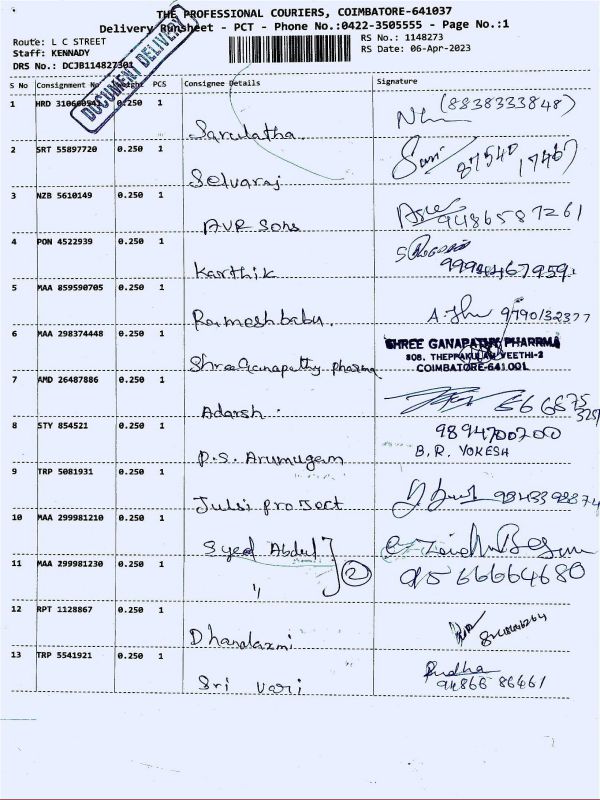 THE PROFESSIONAL COURIERS, COIMBATORE-641037
Delivery Runsheet - PCT - Phone No.:0422-3505555 - Page No.:1
Route: L C STREET
Staff: KENNADY
DRS No.: DCJB114827301
RS No.: 1148273
RS Date: 06-Apr-2023
DOCUMENT DELIVERY
S No Consignment No PCS Consignee Details Signature
1 HRD 0.250 1 Sarulatha (8838333848)
2 SRT 55897720 0.250 1 Selvaraj 87540 17467
3 NZB 5610149 0.250 1 AVR Sons 9486587261
4 PON 4522939 0.250 1 Karthik
5 MAA 859590705 0.250 1 Rameshbabu. 9790132377
6 MAA 298374448 0.250 1 Shree Ganapathy pharma SHREE GANAPATHY PHARRMA
808, THEPPAKULAM VEETHI-2
COIMBATORE-641001.
7 AMD 26487886 0.250 1 Adarsh
8 STY 854521 0.250 1 P.S. Arumugam 9894700200
B.R. YOKESH
9 TRP 5081931 0.250 1 Julsi project
10 MAA 299981210 0.250 1 Syed Abdul
11 MAA 299981230 0.250 1 " 2 9566664680
12 RPT 1128867 0.250 1 Dhanalaxmi
13 TRP 5541921 0.250 1 Sri vari 94866 86661